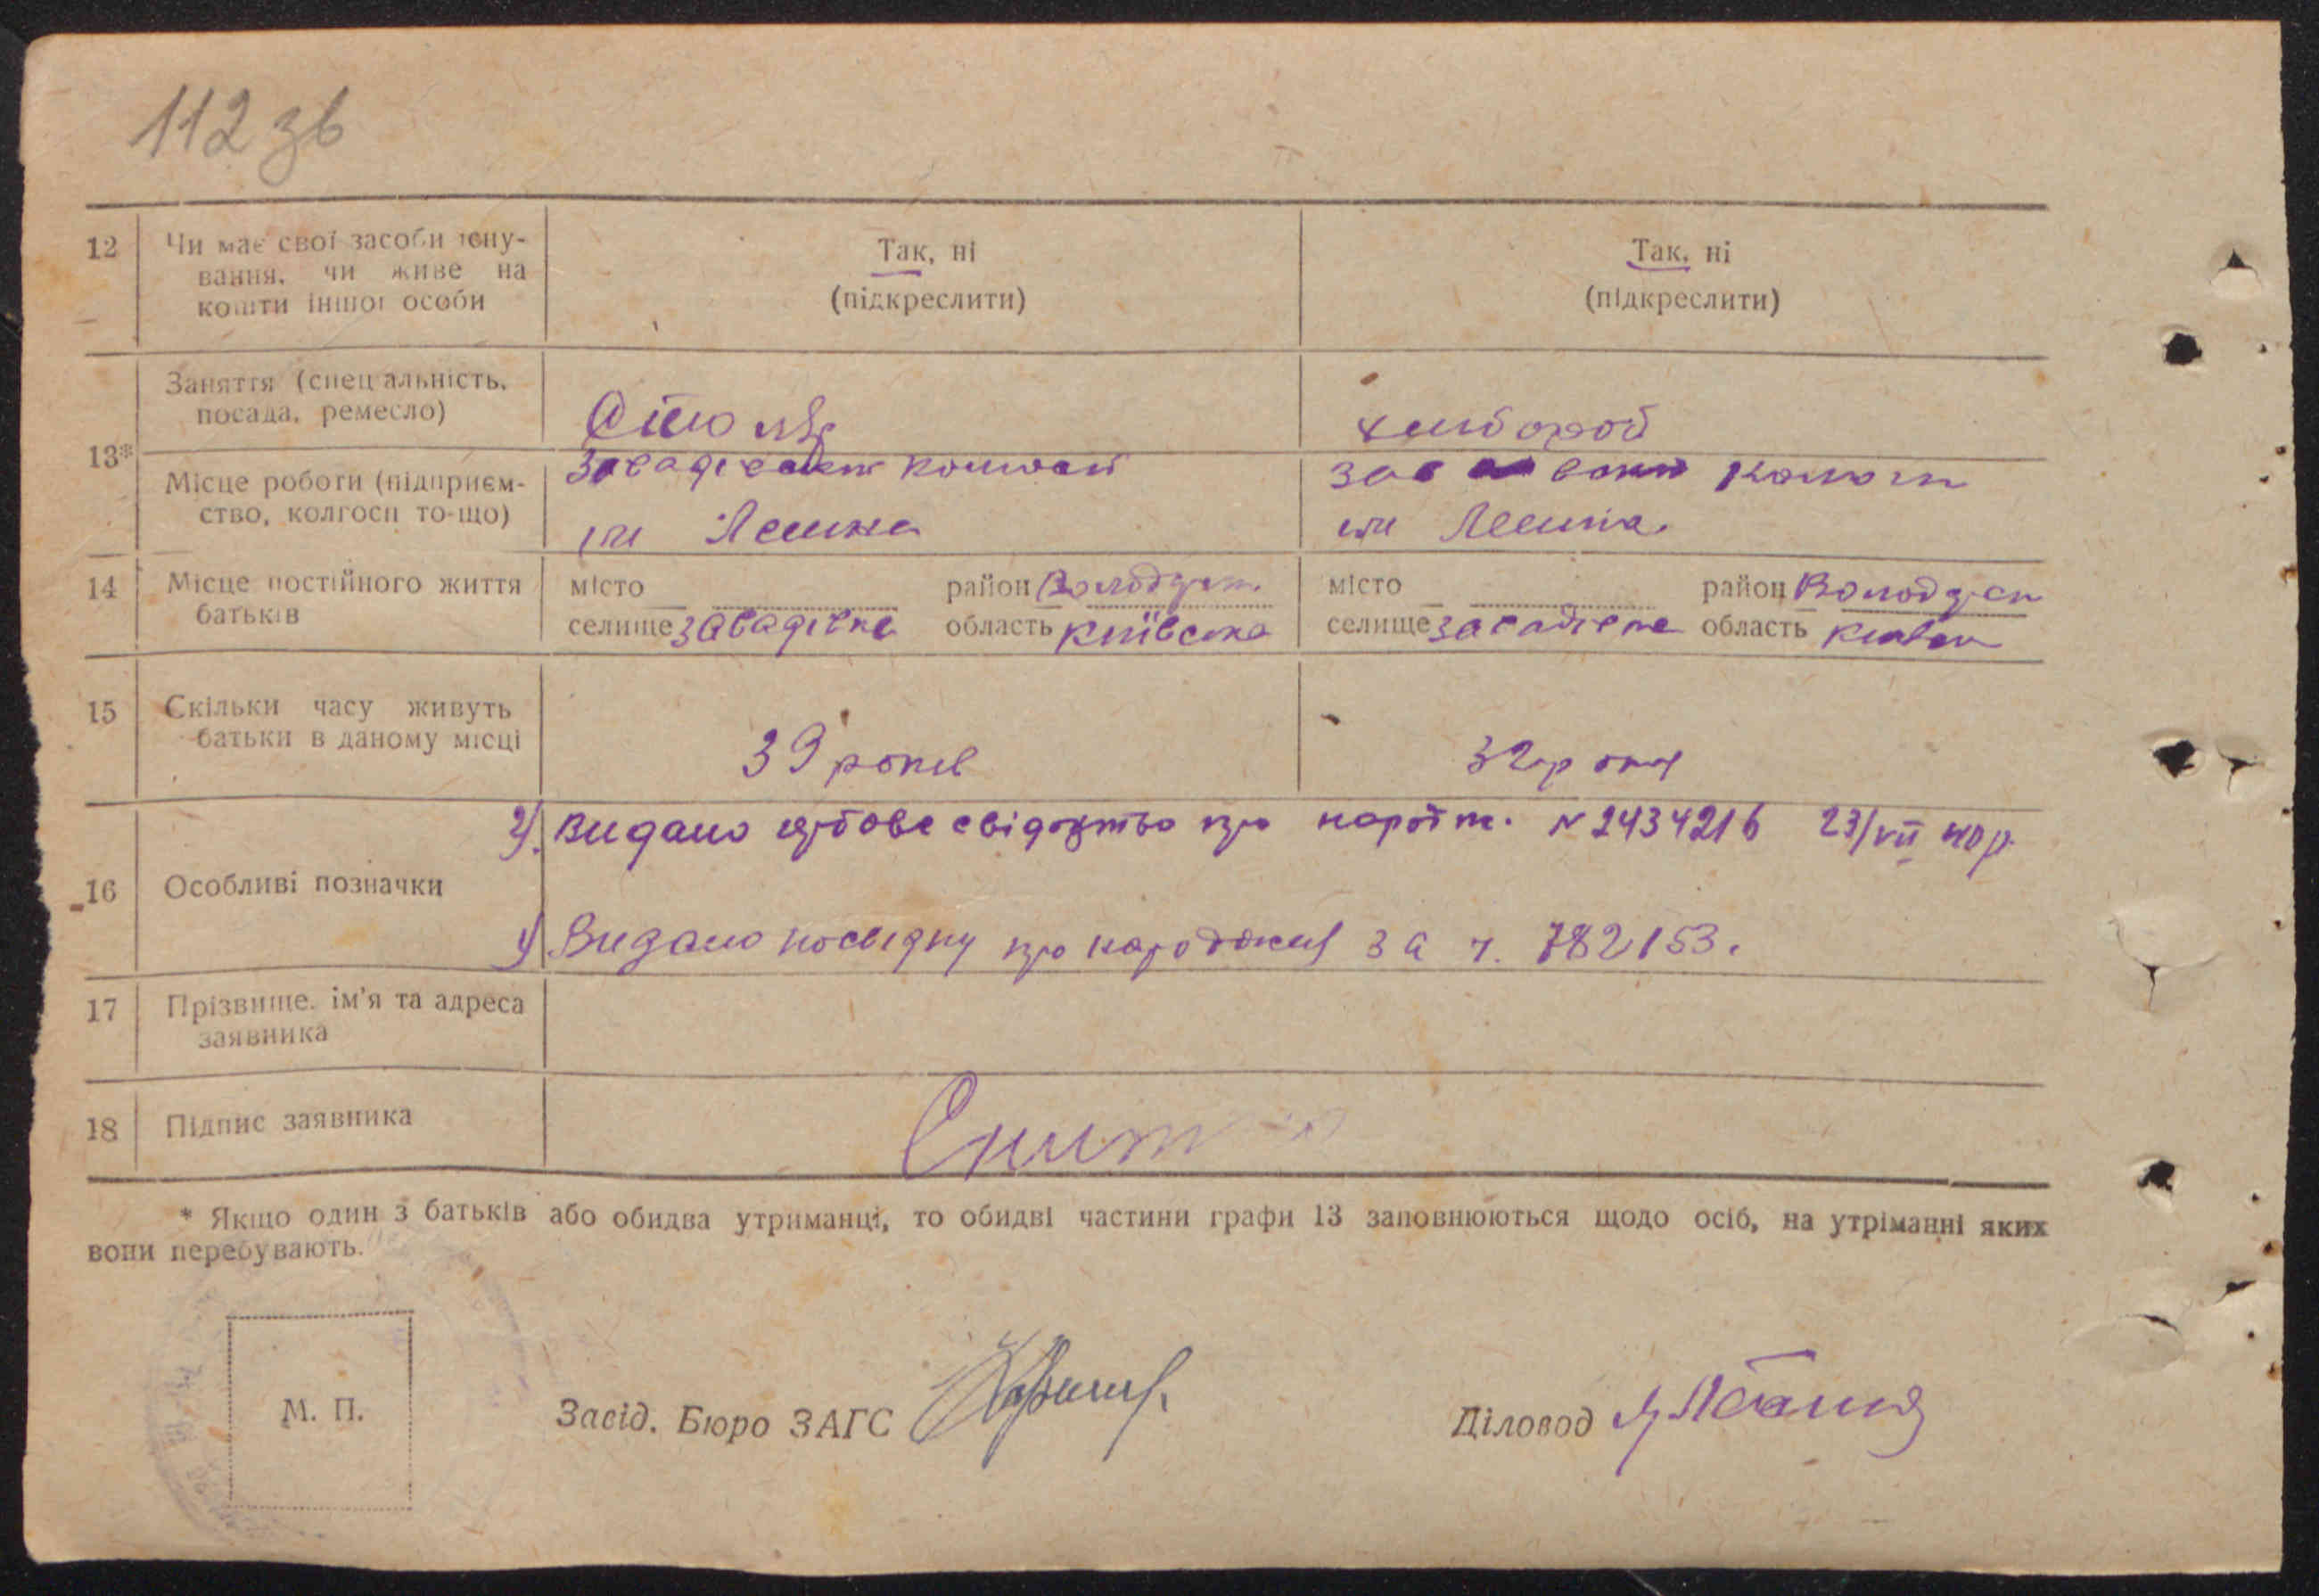 112 зв
12 Чи має свої засоби існу-
вання, чи живе на
кошти іншої особи
Так, ні
(підкреслити)
Так, ні
(підкреслити)
13*
Заняття (спеціальність,
посада, ремесло)
Столяр
хлібороб
Місце роботи (підприєм-
ство, колгосп то-що)
Завадівськ
ім Леніна
ім Леніна.
14 Місце постійного життя
батьків
місто район Володарськ.
селище Завадівка область Київська
місто район Володарськ
селище Завадівка область Київськ
15 Скільки часу живуть
батьки в даному місці
39 років
32 роки
16 Особливі позначки
2). Видано гербове свідоцтво про народж. № 2434216 23/VII 40 р.
1) Видано посвідку про народження за ч. 782153.
17 Прізвище, ім'я та адреса
заявника
18 Підпис заявника
* Якщо один з батьків або обидва утриманці, то обидві частини графи 13 заповнюються щодо осіб, на утріманні яких
вони перебувають.
М. П.
Завід. Бюро ЗАГС
Діловод